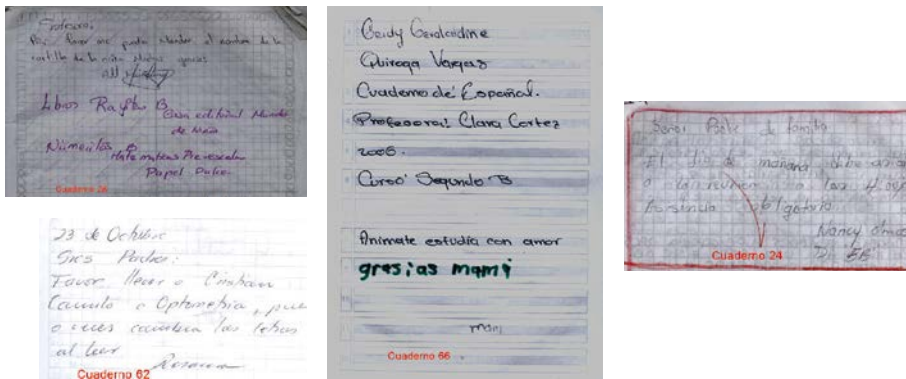 Profesora:
Por favor me puede mandar el nombre de la
cartilla de la niña gracias
Libros B
Gran editorial Mundo
de Niños
B
Matematicas Preescolar
Papel Dulce
Cuaderno 26
23 de Octubre
Sres Padres:
Favor llevar a Cristian
Camilo a Optometria, pues
a veces cambia las letras
al leer
Cuaderno 62
Geraldine
Quiroga Vargas
Cuaderno de Español.
Profesora: Clara Cortez
2006.
Curso: Segundo B
Animate estudia con amor
grasias mami
mami
Cuaderno 66
Señor Padre de familia
El dia de mañana debe asistir
a una reunion a las 4:00
Asistencia obligatoria
Nancy
Cuaderno 24